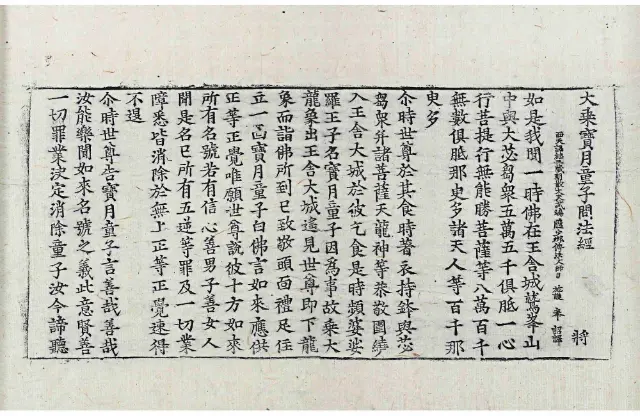 大乘寶月童子問法經 將
施護 奉 詔譯
如是我聞一時佛在王舍城鷲峯山
中與大苾芻衆五萬五千俱胝一心
行菩提行無能勝菩薩等八萬百千
無數俱胝那臾多諸天人等百千那
臾多
尒時世尊於其食時著衣持鉢與苾
芻衆并諸菩薩天龍神等恭敬圍繞
入王舍大城於彼乞食是時頻婆娑
羅王子名寶月童子因爲事故乘大
龍象出王舍大城遙見世尊即下龍
象而詣佛所到已致敬頭面禮足住
立一面寶月童子白佛言如來應供
正等正覺唯願世尊說彼十方如來
所有名號若有信心善男子善女人
聞是名已所有五逆等罪及一切業
障悉皆消除於無上正等正覺速得
不退
尒時世尊告寶月童子言善哉善哉
汝能樂聞如來名號之義此意賢善
一切罪業決定消除童子汝今諦聽